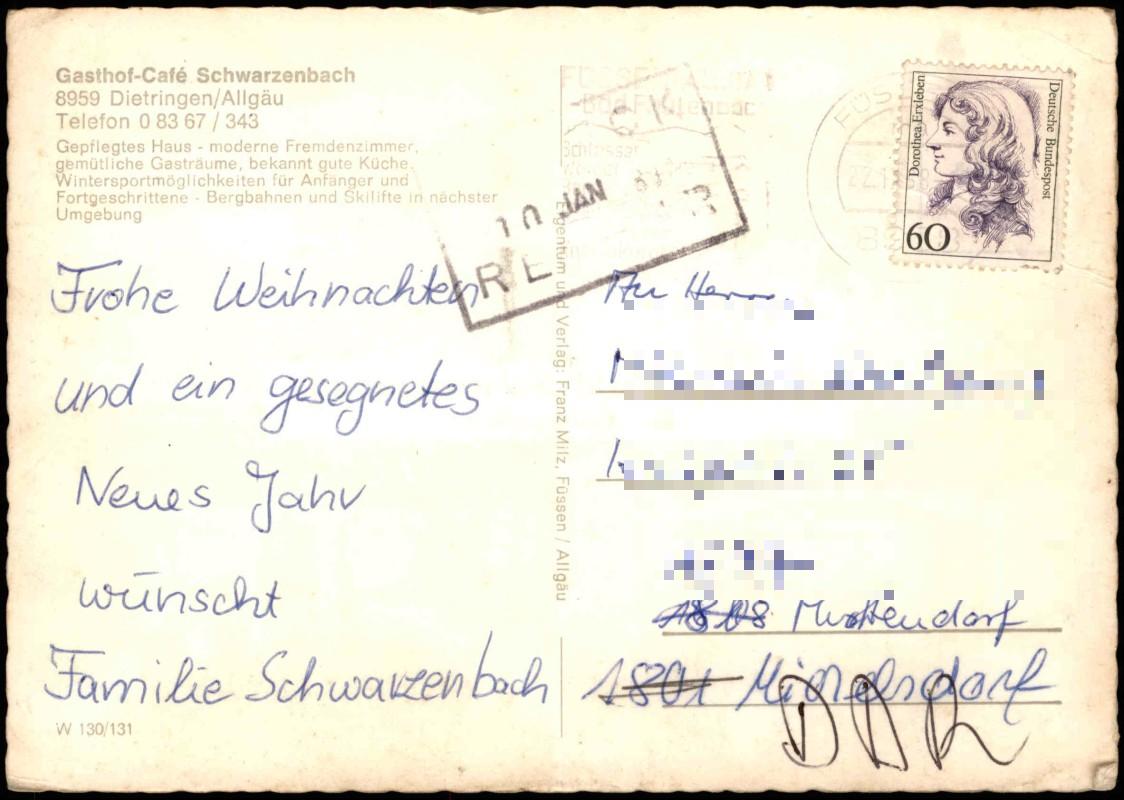 Gasthof-Café Schwarzenbach
8959 Dietringen/Allgäu
Telefon 0 83 67 / 343
Gepflegtes Haus - moderne Fremdenzimmer,
gemütliche Gasträume, bekannt gute Küche.
Wintersportmöglichkeiten für Anfänger und
Fortgeschrittene - Bergbahnen und Skilifte in nächster
Umgebung
Frohe Weihnachten
und ein gesegnetes
Neues Jahr
wünscht
Familie Schwarzenbach
W 130/131
Eigentum und Verlag: Franz Milz, Füssen / Allgäu
10 JAN
RE
Dorothea Erxleben
Deutsche Bundespost
60
Herrn
1801
DDR